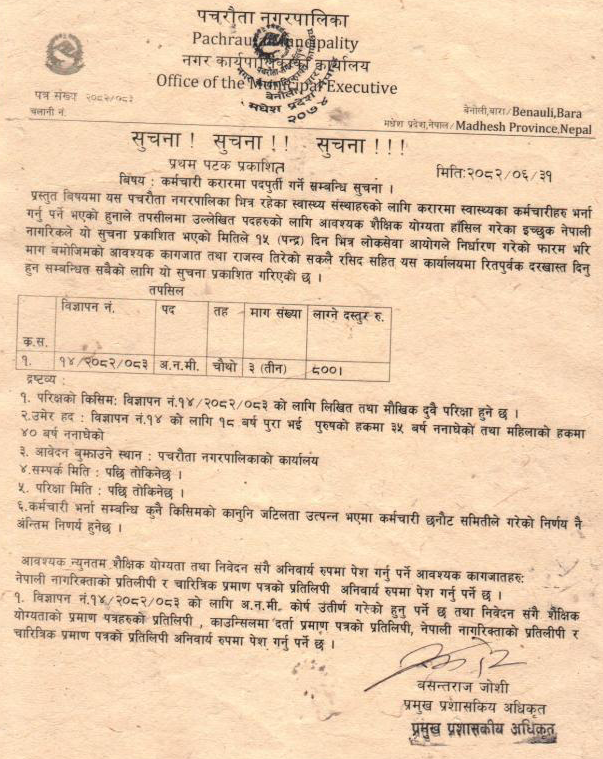 पचरौता नगरपालिका
Pachrauta Municipality
नगर कार्यपालिकाको कार्यालय
Office of the Municipal Executive
बेनौली, बारा
मधेश प्रदेश
२०७४
पत्र संख्य २०८२/०८३
चलानी नं.
बेनौली,बारा/ Benauli,Bara
मधेश प्रदेश,नेपाल/ Madhesh Province,Nepal
सुचना ! सुचना !! सुचना !!!
प्रथम पटक प्रकाशित
मिति:२०८२/०६/३१
बिषय : कर्मचारी करारमा पदपुर्ती गर्ने सम्बन्धि सुचना ।
प्रस्तुत बिषयमा यस पचरौता नगरपालिका भित्र रहेका स्वास्थ्य संस्थाहरुको लागि करारमा स्वास्थ्यका कर्मचारीहरु भर्ना
गर्नु पर्ने भएको हुनाले तपसीलमा उल्लेखित पदहरुको लागि आवश्यक शैक्षिक योग्यता हाँसिल गरेका इच्छुक नेपाली
नागरिकले यो सुचना प्रकाशित भएको मितिले १५ (पन्द्र) दिन भित्र लोकसेवा आयोगले निर्धारण गरेको फारम भरि
माग बमोजिमको आवश्यक कागजात तथा राजस्व तिरेको सक्कलै रसिद सहित यस कार्यालयमा रितपुर्वक दरखास्त दिनु
हुन सम्बन्धित सबैको लागि यो सुचना प्रकाशित गरिएकी छ ।
तपसिल
क्र.स. विज्ञापन नं. पद तह माग संख्या लाग्ने दस्तुर रु.
१. १४/२०८२/०८३ अ.न.मी. चौथो ३ (तीन) ८००।
द्रष्टव्य :
१. परिक्षको किसिम: विज्ञापन नं.१४/२०८२/०८३ को लागि लिखित तथा मौखिक दुवै परिक्षा हुने छ ।
२.उमेर हद : विज्ञापन नं.१४ को लागि १८ बर्ष पुरा भई पुरुषको हकमा ३५ बर्ष ननाघेको तथा महिलाको हकमा
४० बर्ष ननाघेको
३. आवेदन बुझाउने स्थान : पचरौता नगरपालिकाको कार्यालय
४.सम्पर्क मिति : पछि तोकिनेछ ।
५. परिक्षा मिति : पछि तोकिनेछ ।
६.कर्मचारी भर्ना सम्बन्धि कुनै किसिमको कानुनि जटिलता उत्पन्न भएमा कर्मचारी छनौट समितीले गरेको निर्णय नै
अंन्तिम निर्णय हुनेछ ।
आवश्यक न्युनतम शैक्षिक योग्यता तथा निवेदन संगै अनिवार्य रुपमा पेश गर्नु पर्ने आवश्यक कागजातहरु:
नेपाली नागरिक्ताको प्रतिलीपी र चारित्रिक प्रमाण पत्रको प्रतिलिपी अनिवार्य रुपमा पेश गर्नु पर्ने छ ।
१. विज्ञापन नं.१४/२०८२/०८३ को लागि अ.न.मी. कोर्ष उतीर्ण गरेको हुनु पर्ने छ तथा निवेदन संगै शैक्षिक
योग्यताको प्रमाण पत्रहरुको प्रतिलिपी , काउन्सिलमा दर्ता प्रमाण पत्रको प्रतिलिपी, नेपाली नागरिक्ताको प्रतिलीपी र
चारित्रिक प्रमाण पत्रको प्रतिलिपी अनिवार्य रुपमा पेश गर्नु पर्ने छ ।
बसन्तराज जोशी
प्रमुख प्रशासकिय अधिकृत
प्रमुख प्रशासकीय अधिकृत